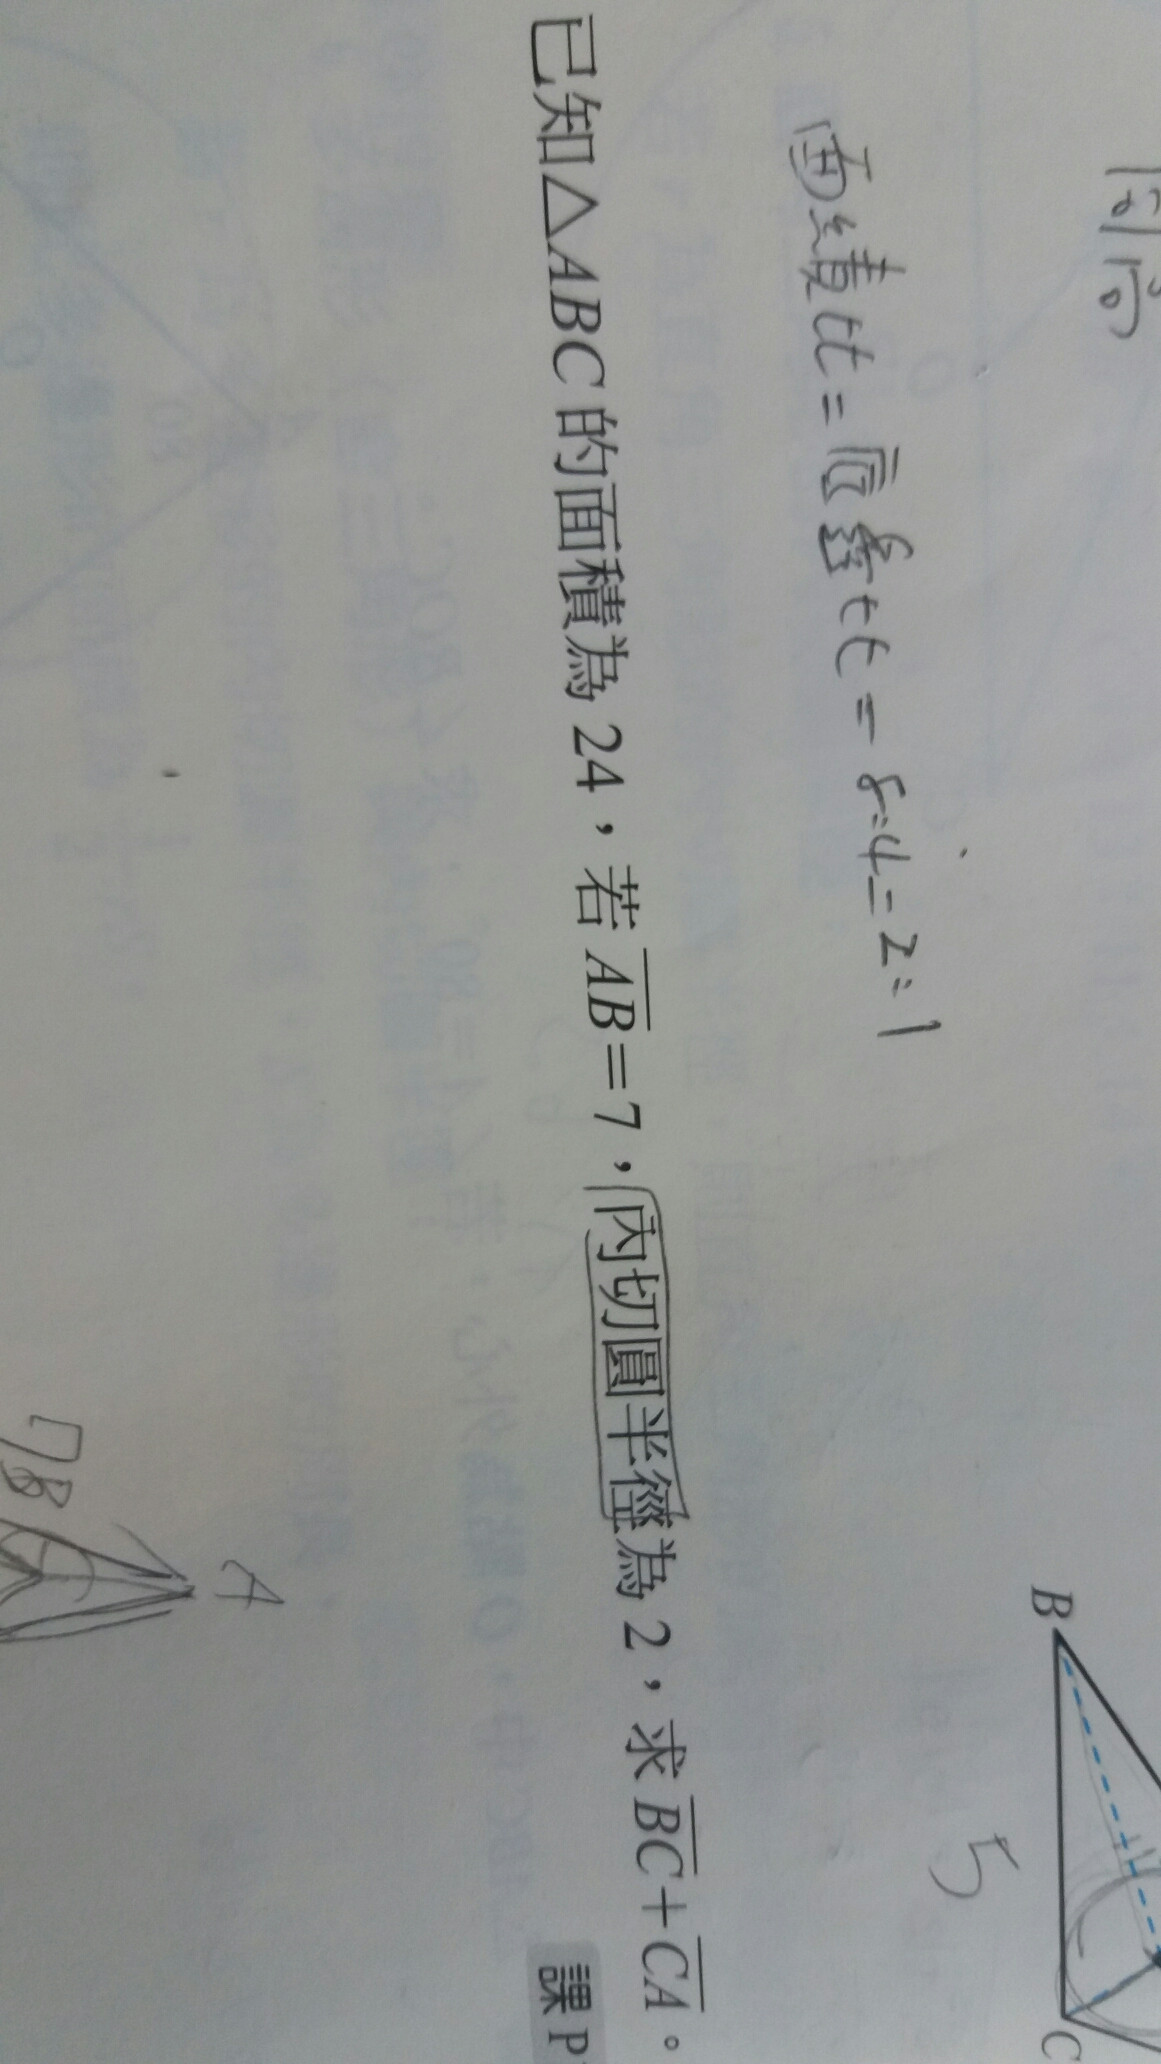 面積比=底邊比=8:4=2:1
B
5
C
已知△ABC的面積為24，若AB=7，內切圓半徑為2，求BC+CA。
課P
A
7
B